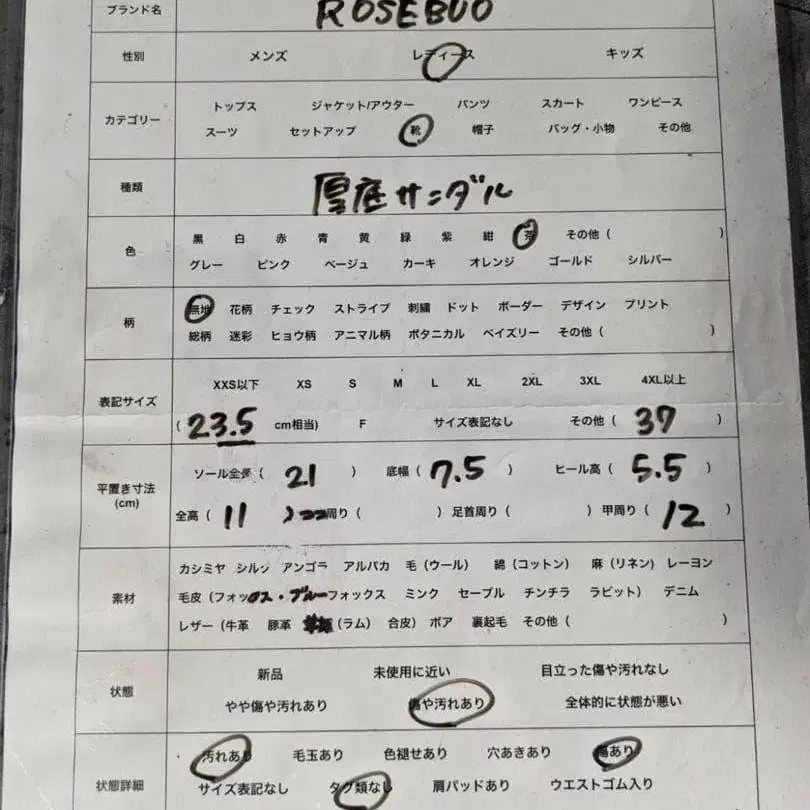 ブランド名 ROSEBUD
性別 メンズ レディース キッズ
カテゴリー
トップス ジャケット/アウター パンツ スカート ワンピース
スーツ セットアップ 靴 帽子 バッグ・小物 その他
種類 厚底サンダル
色
黒 白 赤 青 黄 緑 紫 紺 茶 その他 ( )
グレー ピンク ベージュ カーキ オレンジ ゴールド シルバー
柄
無地 花柄 チェック ストライプ 刺繍 ドット ボーダー デザイン プリント
総柄 迷彩 ヒョウ柄 アニマル柄 ボタニカル ペイズリー その他 ( )
表記サイズ
XXS以下 XS S M L XL 2XL 3XL 4XL以上
( 23.5 cm相当) F サイズ表記なし その他 ( 37 )
平置き寸法
(cm)
ソール全長 ( 21 ) 底幅 ( 7.5 ) ヒール高 ( 5.5 )
全高 ( 11 ) 周り ( ) 足首周り ( ) 甲周り ( 12 )
素材
カシミヤ シルク アンゴラ アルパカ 毛 (ウール) 綿 (コットン) 麻 (リネン) レーヨン
毛皮 (フォックス・ブルーフォックス ミンク セーブル チンチラ ラビット) デニム
レザー (牛革 豚革 (ラム) 合皮) ボア 裏起毛 その他 ( )
状態
新品 未使用に近い 目立った傷や汚れなし
やや傷や汚れあり 傷や汚れあり 全体的に状態が悪い
状態詳細
汚れあり 毛玉あり 色褪せあり 穴あきあり 傷あり
サイズ表記なし タグ類なし 肩パッドあり ウエストゴム入り